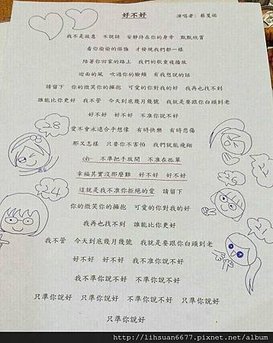 好不好
演唱者：蔡旻佑
我不是故意　不說話　安靜待在你的身旁　默默欣賞
看你偷偷的張惶　才發現我們都一樣
陪著你回家的路上　我們的影
迎面的風　吹過你的臉頰　有我想說的話
請留下　你的微笑你的擁抱　可愛的你對我的好　我再也找不到
誰能比你更好　我管　今天到底幾月幾號　我就是要跟你白頭到老
好不好　好不好　好不好　不准你說不好
愛不會永遠合乎想像　有時快樂　有時悲傷
那又怎樣　只要你不害怕　我們就能飛翔
oh　不準把手放開　不准在孤單
幸福其實沒那麼難　好不好　好不好
這就是我不准你拒絕的愛　請留下
你的微笑你的擁抱　可愛的你對我的好
我再也找不到　誰能比你更好
我不管　今天到底幾月幾號　我就是要跟你白頭到老
好不好　好不好　好不好　不准你說不好
我不准你說不好
只準你說好　只準你說好　不准你說不好　只準你說好
只準你說好
28
24
22
27
http://lihsuan6677.pixnet.net/album